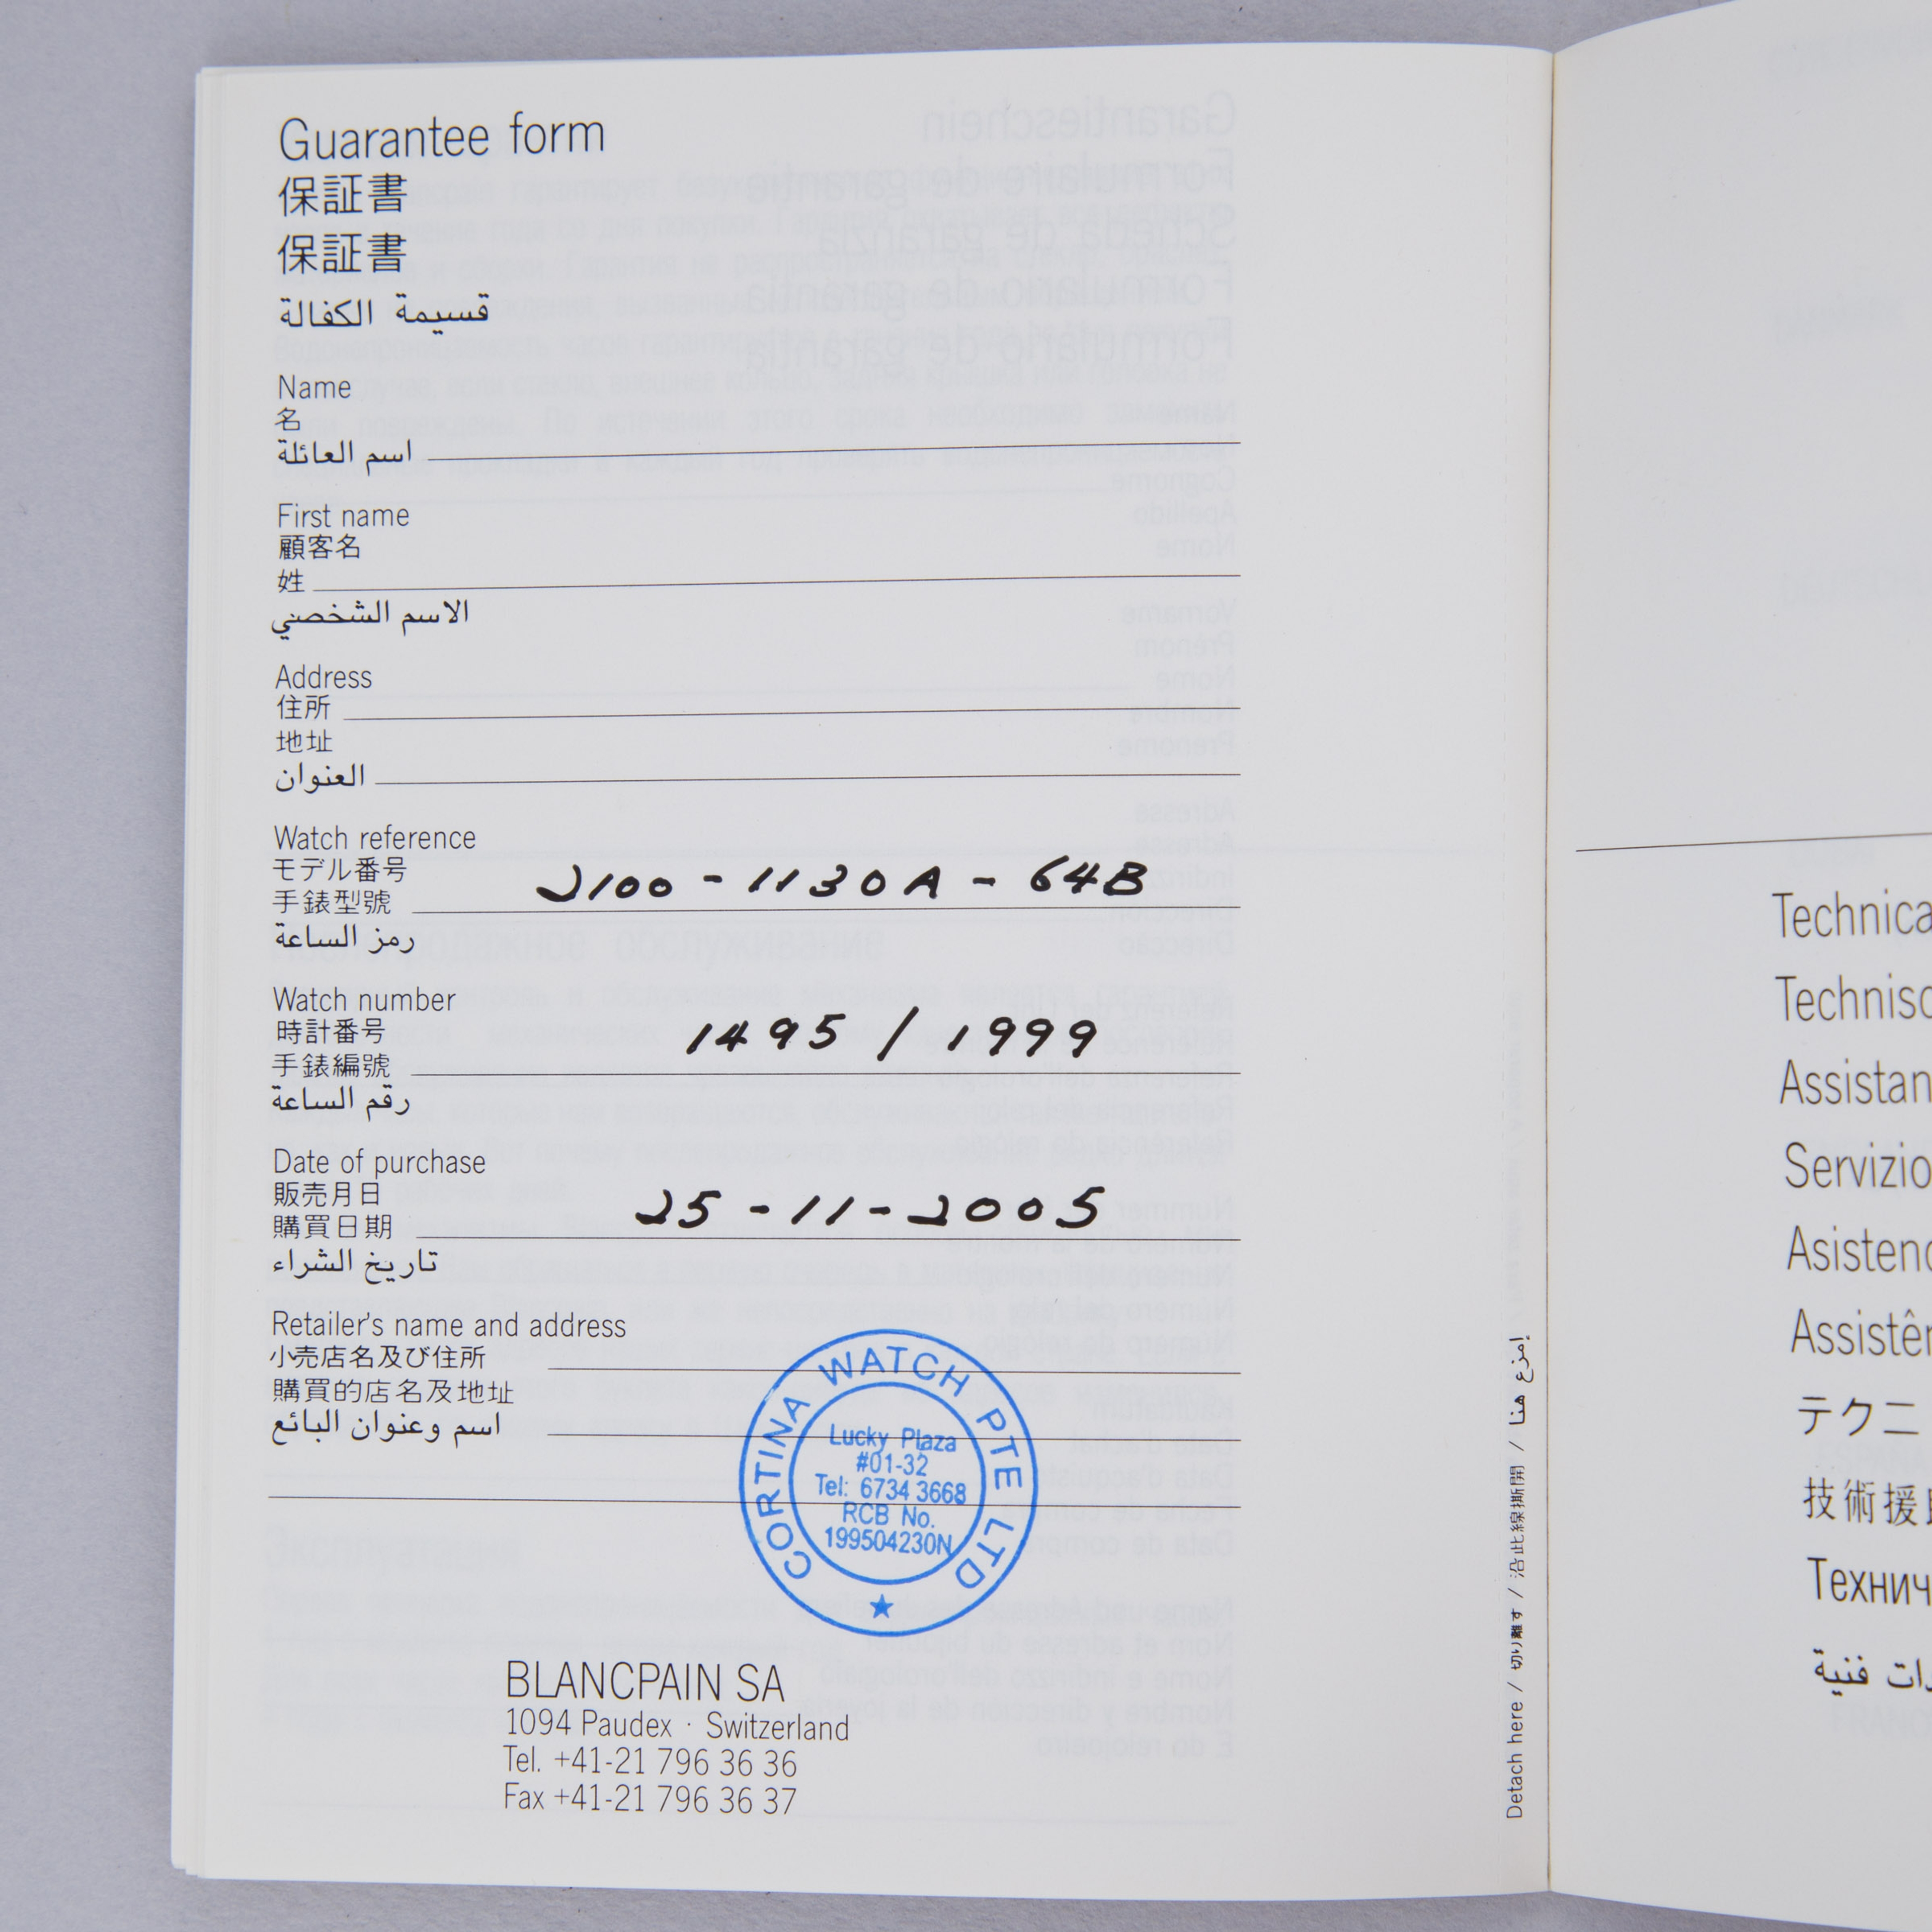 Guarantee form
保証書
保証書
قسيمة الكفالة
Name
名
اسم العائلة
First name
顧客名
姓
الاسم الشخصي
Address
住所
地址
العنوان
Watch reference
モデル番号
手錶型號
2100 - 1130A - 64B
رمز الساعة
Watch number
時計番号
手錶編號
1495 / 1999
رقم الساعة
Date of purchase
販売月日
購買日期
25 - 11 - 2005
تاريخ الشراء
Retailer's name and address
小売店名及び住所
購買的店名及地址
اسم وعنوان البائع
CORTINA WATCH PTE LTD
Lucky Plaza
#01-32
Tel: 6734 3668
RCB No.
199504230N
BLANCPAIN SA
1094 Paudex · Switzerland
Tel. +41-21 796 36 36
Fax +41-21 796 36 37
Detach here / 切り離す / 沿此線撕開 / إمزع هنا
Technica
Technisc
Assistan
Servizio
Asistenc
Assistên
テクニ
技術援
Технич
فنية